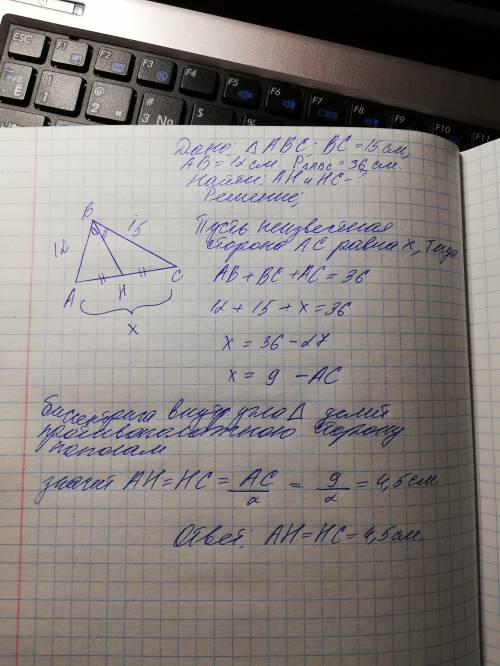 ESC
F1
F2
F3
F4
F5
F6
F7
F8
F9
F10
F11
Ё
!
1
"
2
№
3
$
%
Дано: △ABC: BC = 15 см,
AB = 12 см. P△ABC = 36 см.
Найти: AH и HC - ?
Решение:
Пусть неизвестная
сторона AC равна x, тогда
AB + BC + AC = 36
12 + 15 + x = 36
x = 36 - 27
x = 9 - AC
B
12
15
A
H
C
x
биссектриса внутр угла △ делит
противоположную сторону
пополам
значит AH = HC = AC/2 = 9/2 = 4,5 см
Ответ: AH = HC = 4,5 см.